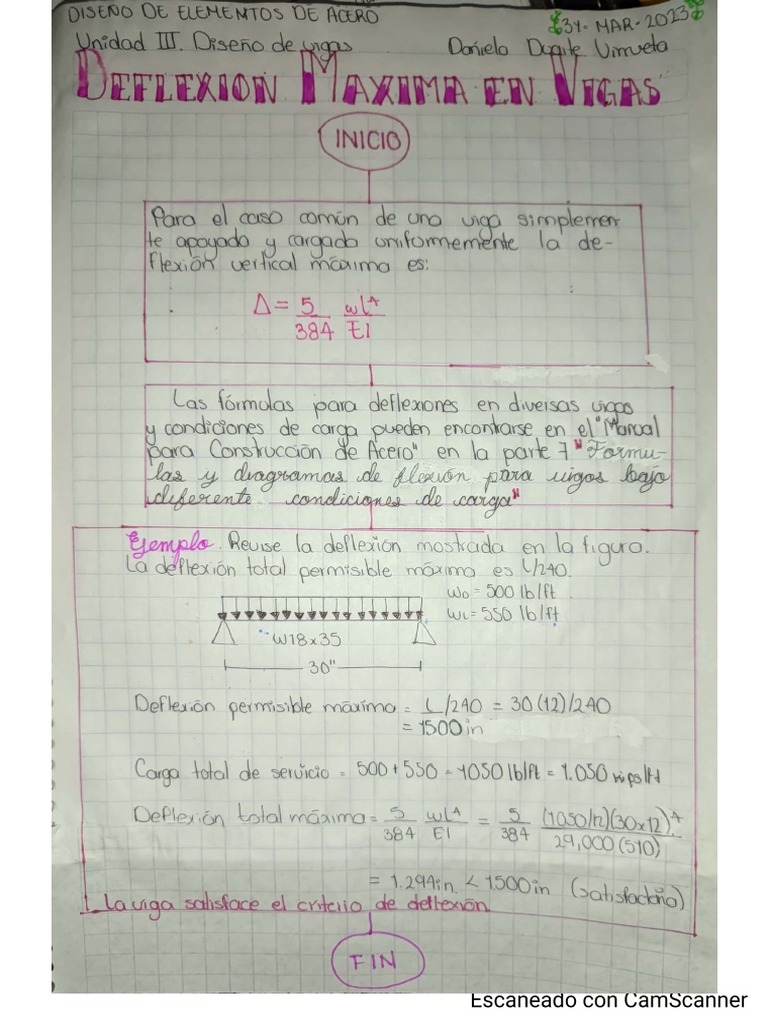 DISEÑO DE ELEMENTOS DE ACERO
31-MAR-2023
Unidad III. Diseño de vigas
DEFLEXION MAXIMA EN VIGAS
INICIO
Para el caso común de una viga simplemen
te apoyada y cargada uniformemente la de-
flexión vertical máxima es:
Δ = 5/384 wL⁴/EI
Las fórmulas para deflexiones en diversas vigas
y condiciones de carga pueden encontarse en el "Manual
para Construcción de Acero" en la parte 7 "Formu-
las y diagramas de flexión para vigas bajo
diferente condiciones de carga"
Ejemplo. Revise la deflexión mostrada en la figura.
La deflexión total permisible máxima es L/240.
WD = 500 lb/ft
WL = 550 lb/ft
W18x35
30"
Deflexión permisible máxima = L/240 = 30(12)/240
= 1500 in
Carga total de servicio = 500 + 550 = 1050 lb/ft = 1.050 kips/ft
Deflexión total máxima = 5/384 wL⁴/EI = 5/384 (1.050/12)(30x12)⁴/29,000(510)
= 1.294 in. < 1.500 in (Satisfactoria)
La viga satisface el criterio de deflexión
FIN
Escaneado con CamScanner